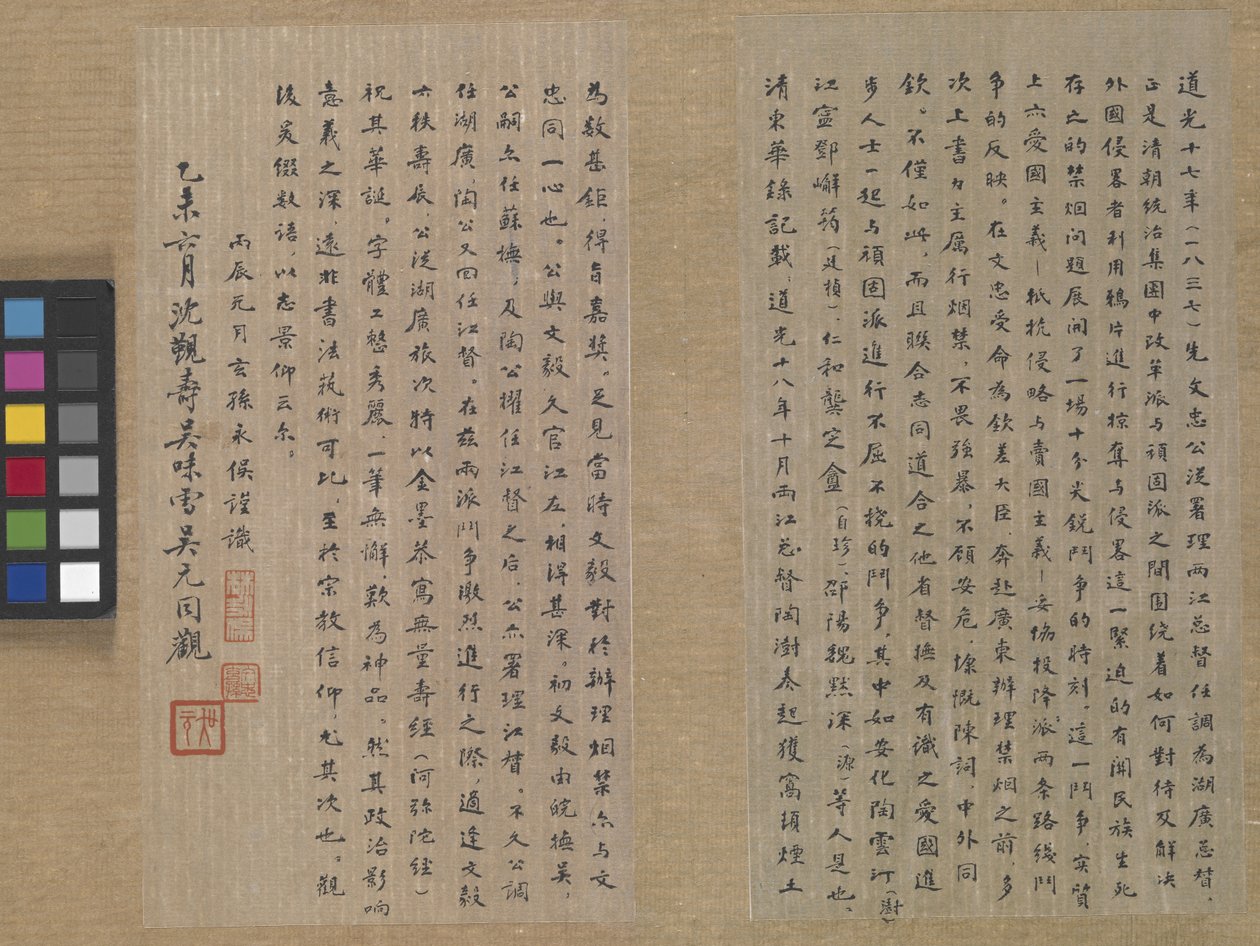 道光十七年（一八三七）先文忠公從署理两江总督任調為湖廣总督，
正是清朝統治集團中改革派与頑固派之間围绕着如何對待及解决
外國侵畧者利用鴉片進行掠奪与侵畧這一緊迫的有關民族生死
存亡的禁烟问题展開了一場十分尖銳鬥争的時刻。這一鬥争，实質
上六爱國主義—抵抗侵略与賣國主義—妥協投降派，两条路线鬥
争的反映。在文忠受命為欽差大臣，奔赴廣東辦理禁烟之前，多
次上書力主厲行烟禁，不畏強暴，不顾安危，慷慨陳詞，中外同
欽。不僅如此，而且聯合志同道合之他省督撫及有識之愛國進
步人士一起与頑固派進行不屈不挠的鬥争，其中如安化陶雲汀（澍）
江寧鄧嶰筠（廷楨），仁和龔定盦（自珍），邵陽魏默深（源）等人是也。
清東華錄記載：道光十八年十月两江总督陶澍奏起獲窩頓煙土
為数甚鉅，得旨嘉奬。足見當時文毅對於辦理烟禁亦与文
忠同一心也。公與文毅久官江左，相得甚深。初文毅由皖撫吳，
公嗣亦任蘇撫，及陶公擢任江督之后，公亦署理江督。不久公調
任湖廣，陶公又回任江督。在兹兩派鬥争激烈進行之際，適逢文毅
六秩壽辰，公從湖廣旅次特以金墨恭寫無量壽經（阿弥陀经）
祝其華誕。字體工整秀麗，一筆無懈，歎為神品。然其政治影响
意義之深遠非書法藝術可比，至於宗教信仰，尤其次也。觀
後爰缀数語，以志景仰云尔。
丙辰元月玄孫永俁謹識
乙未六月沈觀壽吳味雪吴元同觀